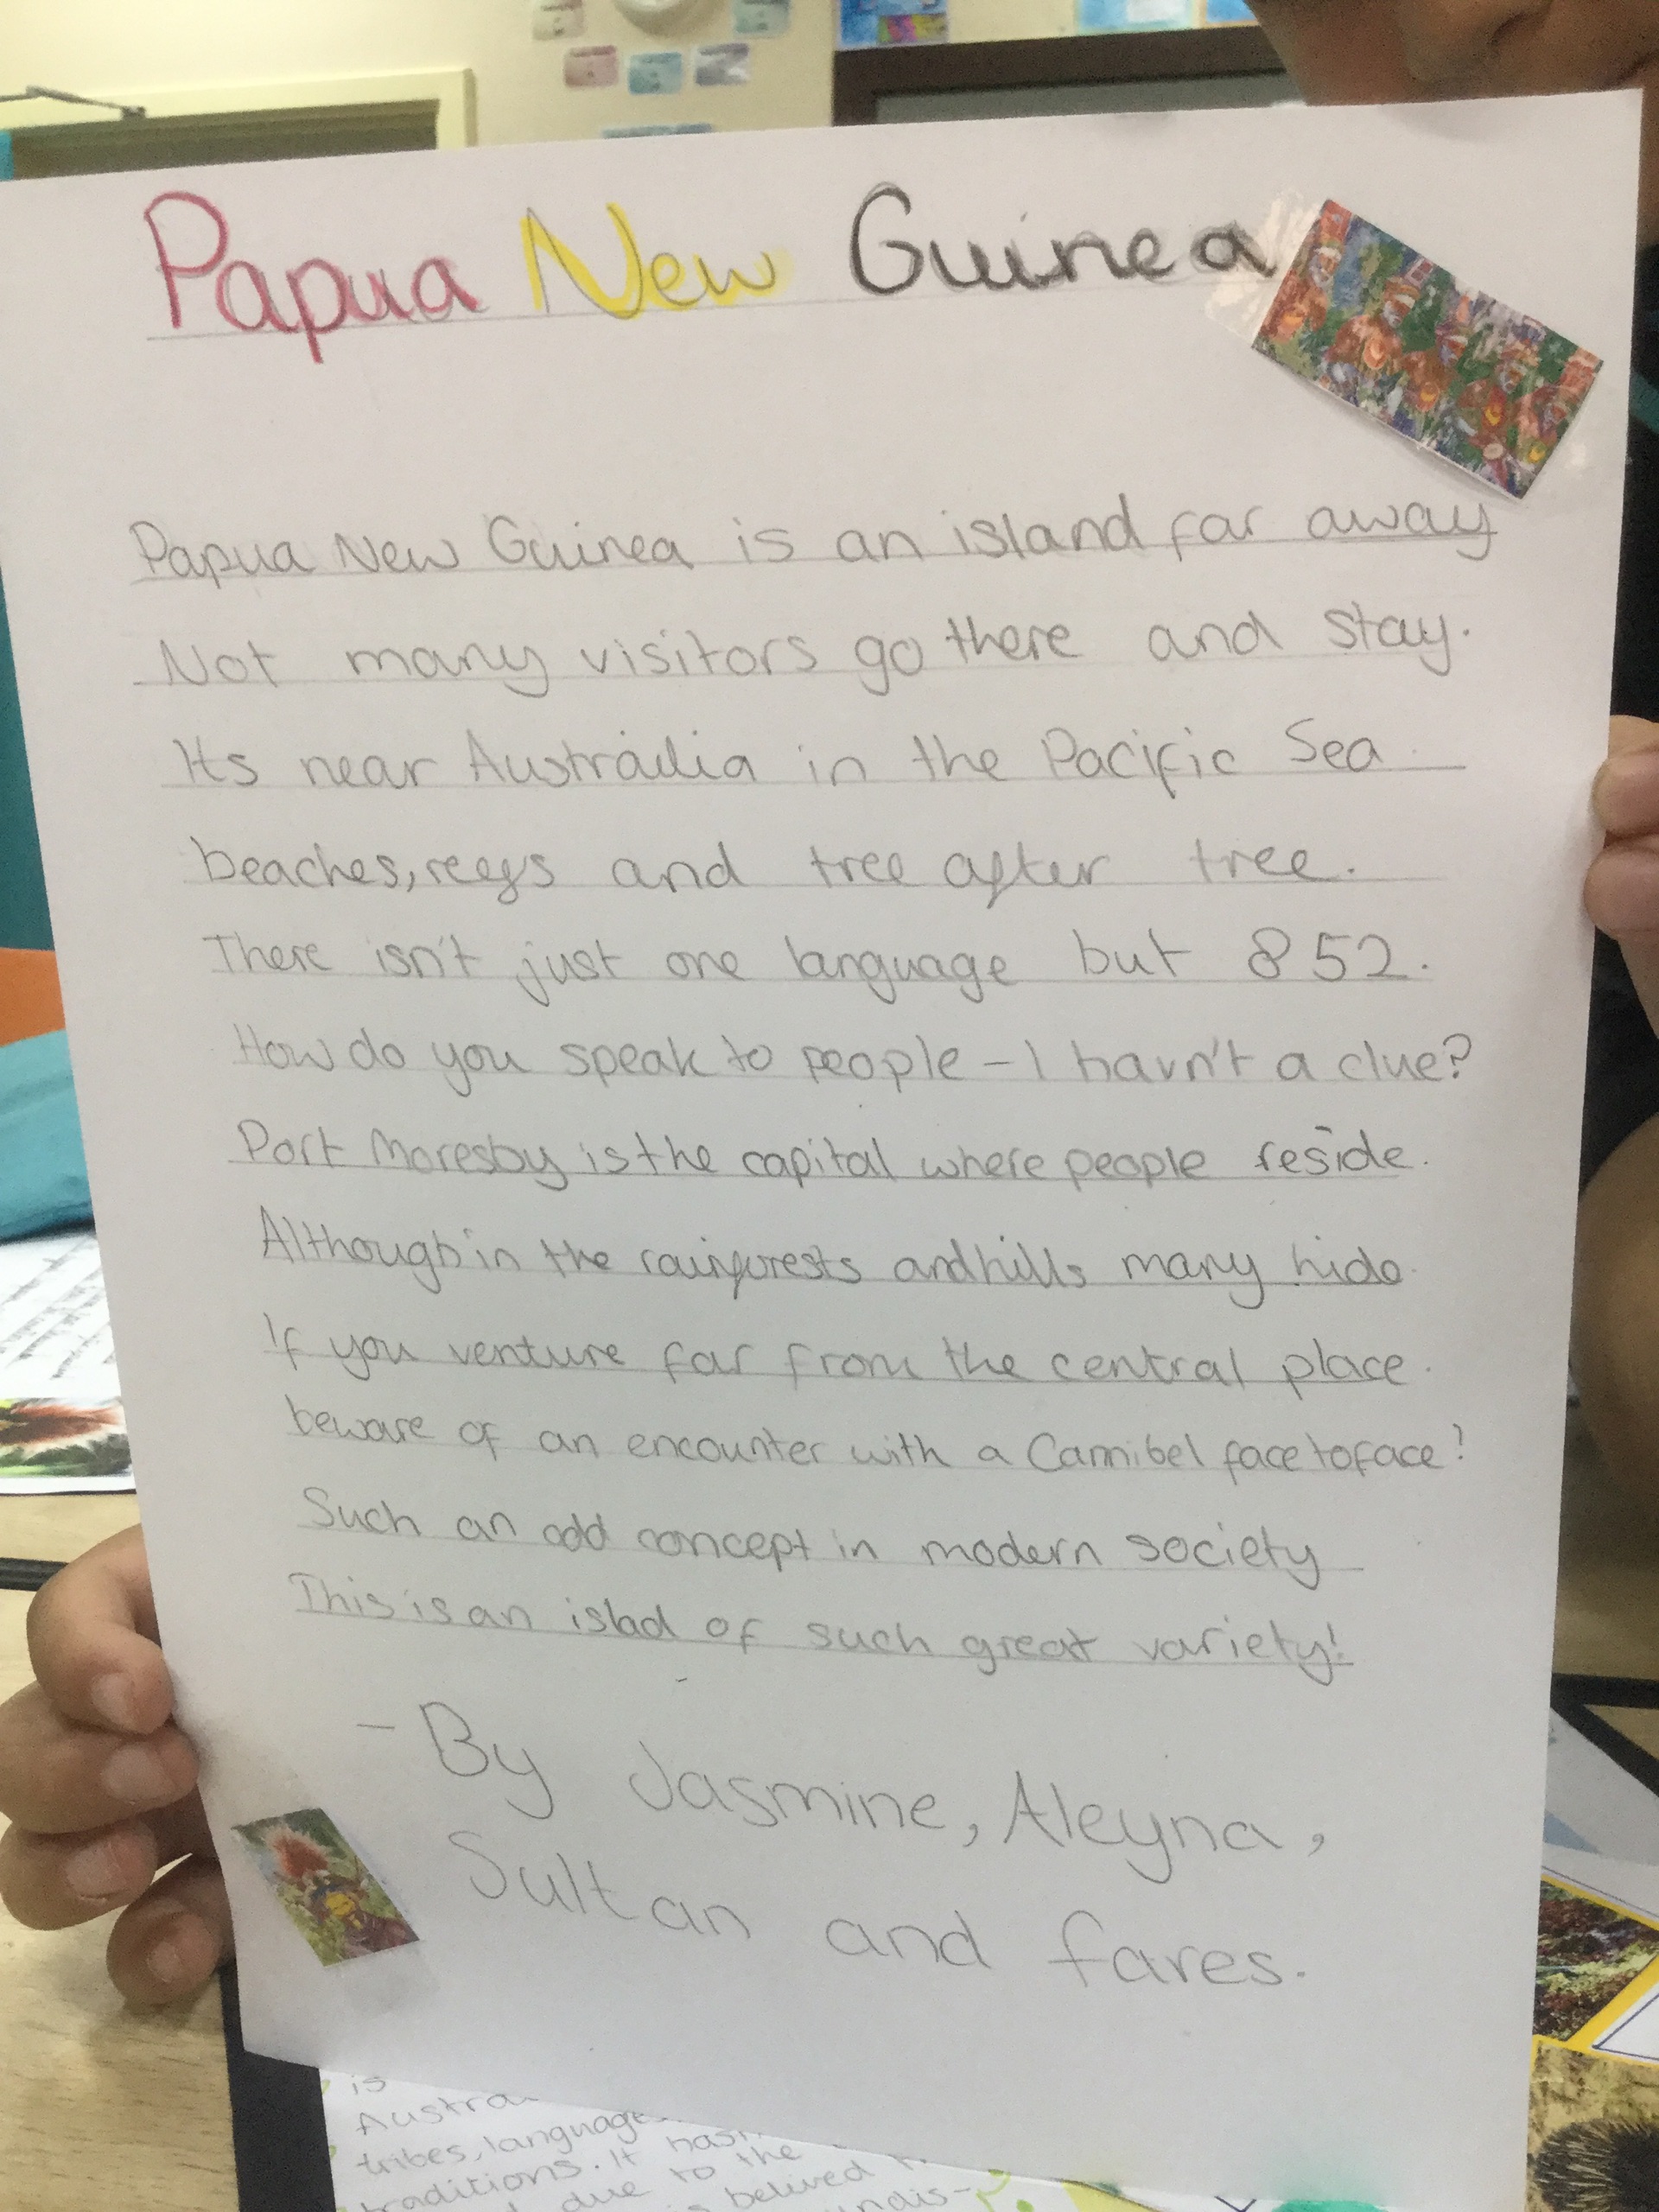 Papua New Guinea
Papua New Guinea is an island far away
Not many visitors go there and stay.
Its near Austrailia in the Pacific Sea
beaches, reefs and tree after tree.
There isn't just one language but 852.
How do you speak to people - I havn't a clue?
Port Moresby is the capital where people reside.
Although in the rainforests and hills many hide.
If you venture far from the central place.
beware of an encounter with a Cannibel face to face!
Such an odd concept in modern society
This is an islad of such great variety!
- By Jasmine, Aleyna,
Sultan and fares.
is
Austra
tribes, language
traditions. It hasn
due to the
is belived